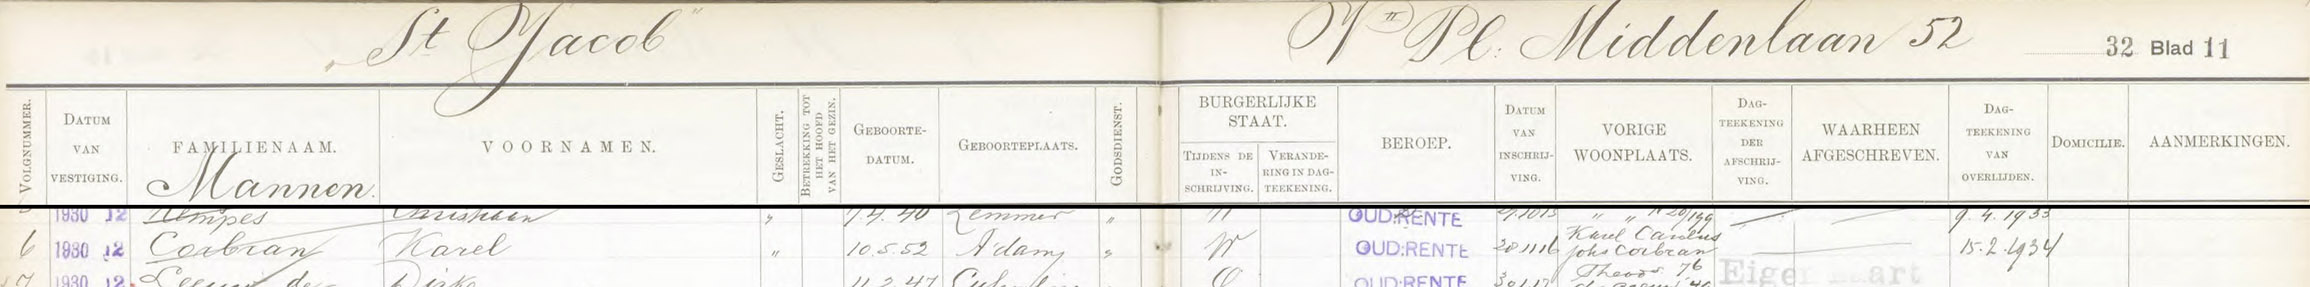 St Jacob" Pl. Middenlaan 52 32 Blad 11
VOLGNUMMER. DATUM VAN VESTIGING. FAMILIENAAM. VOORNAMEN. GESLACHT. BETREKKING TOT HET HOOFD VAN HET GEZIN. GEBOORTE-DATUM. GEBOORTEPLAATS. GODSDIENST. BURGERLIJKE STAAT. TIJDENS DE IN-SCHRIJVING. VERANDE-RING IN DAG-TEEKENING. BEROEP. DATUM VAN INSCHRIJ-VING. VORIGE WOONPLAATS. DAG-TEEKENING DER AFSCHRIJ-VING. WAARHEEN AFGESCHREVEN. DAG-TEEKENING VAN OVERLIJDEN. DOMICILIE. AANMERKINGEN.
Mannen.
1930 12 Kempes Christiaan " 7.4.40 Lemmer " OUD:RENTE " " 9.4.1933
6 1930 12 Corbran Karel " 10.5.52 A'dam " W OUD:RENTE 28 11 16 Karel Carolus Johs Corbran 15.2.1934
7 1930 12 Leeuw de Dirk 11.2.47 OUD:RENTE Theod. 76